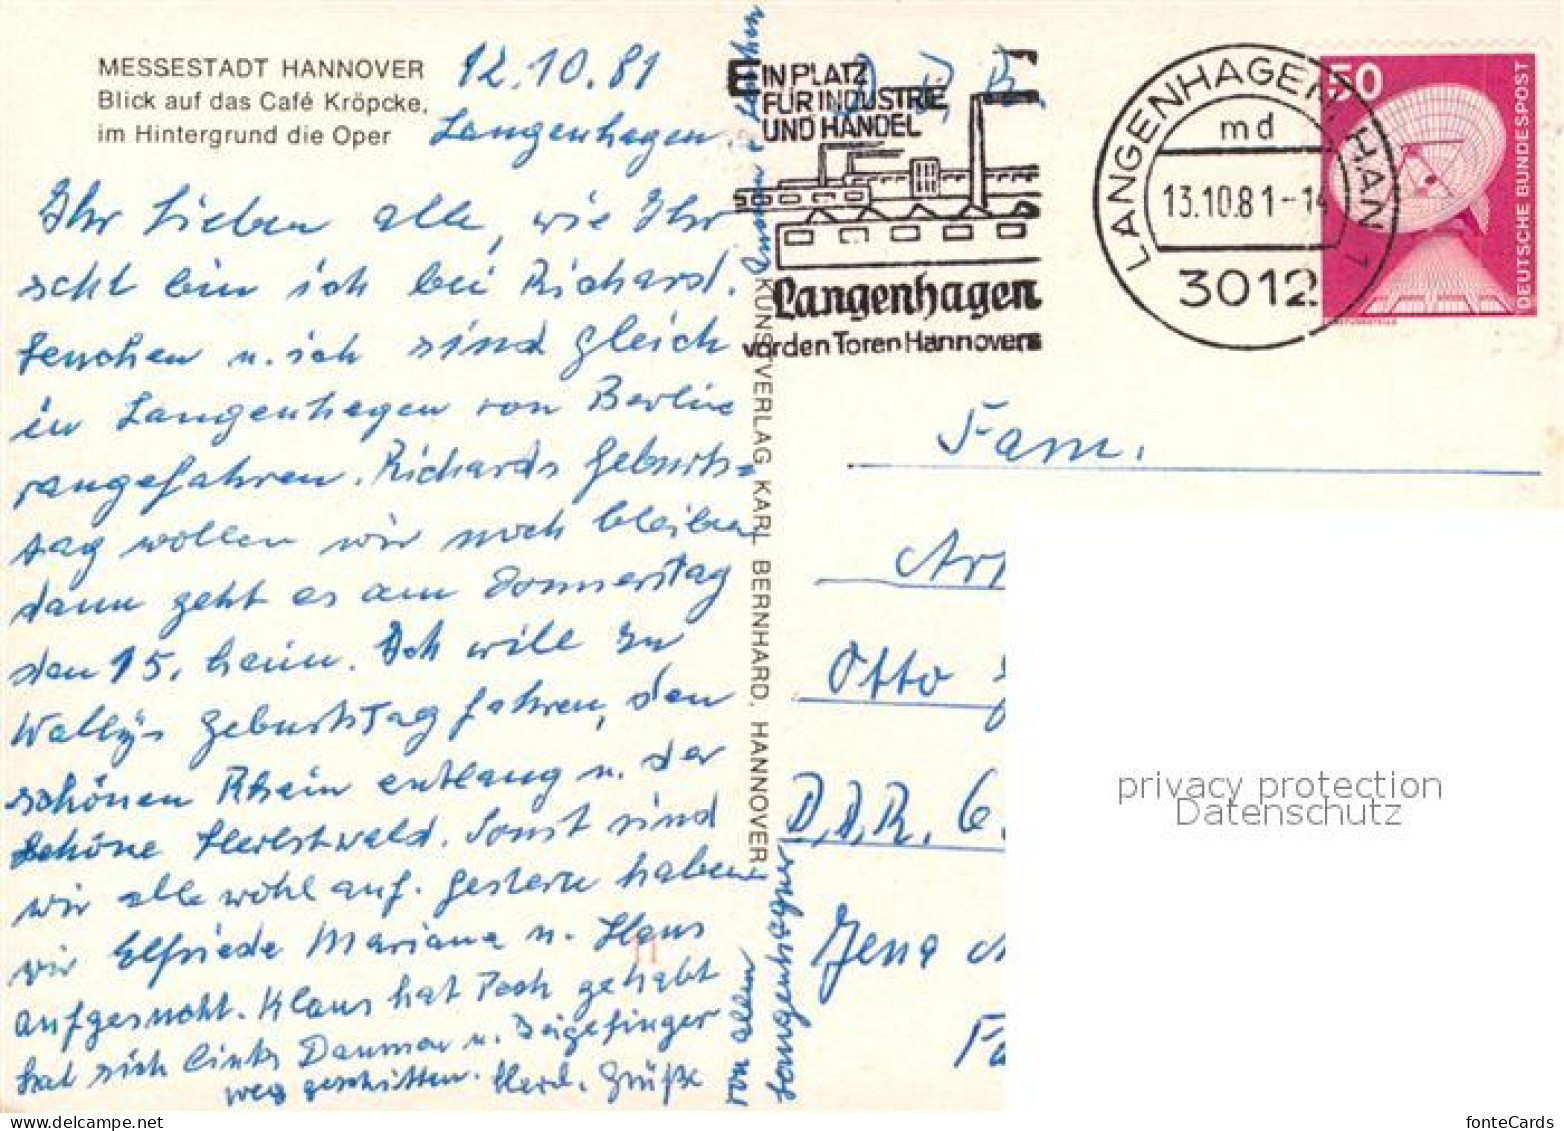 MESSESTADT HANNOVER
Blick auf das Café Kröpcke,
im Hintergrund die Oper
12.10.81
Langenhagen.
Ihr Lieben alle, wie Ihr
seht bin ich bei Richard.
u. ich sind gleich
in Langenhagen von Berlin
rangefahren. Richards Geburts=
tag wollen wir noch bleiben
dann geht es am Donnerstag
den 15. heim. Ich will zu
Wally's Geburtstag fahren, den
schönen Rhein entlang u. der
schöne Herbstwald. Sonst sind
wir alle wohl auf. Gestern haben
wir Elfriede Mariana u. Klaus
aufgesucht. Klaus hat Pech gehabt
hat sich links Daumen u. Zeigefinger
weg geschnitten. Herzl. Grüße
von allen
KUNSTVERLAG KARL BERNHARD, HANNOVER
EIN PLATZ
FÜR INDUSTRIE
UND HANDEL
Langenhagen
vor den Toren Hannovers
D. D. R.
LANGENHAGEN, HAN 1
md
13.10.81-14
3012
50
DEUTSCHE BUNDESPOST
Fam.
Otto
D.D.R. 6
Jena
privacy protection
Datenschutz
11
fonteCards